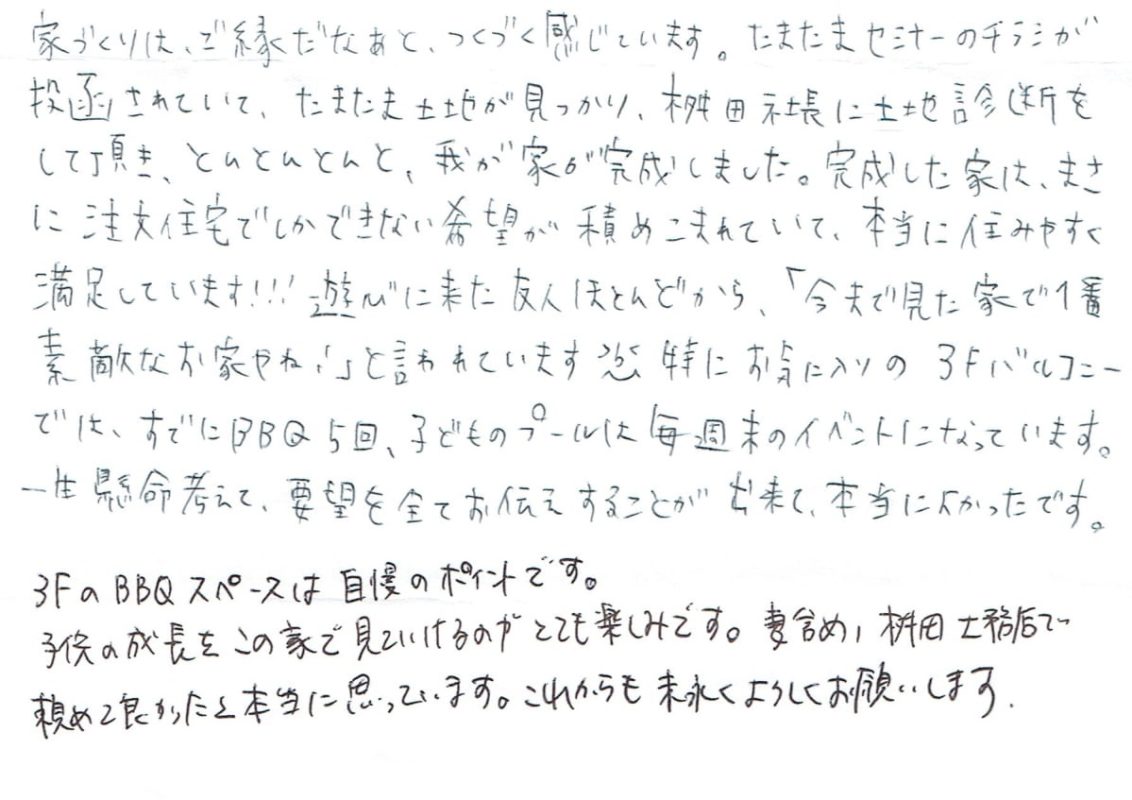 家づくりは、ご縁だなぁと、つくづく感じています。たまたまセミナーのチラシが
投函されていて、たまたま土地が見つかり、桝田社長に土地診断を
して頂き、とんとんとんと、我が家が完成しました。完成した家は、まさ
に注文住宅でしかできない希望が積めこまれていて、本当に住みやすく
満足しています!!! 遊びに来た友人ほとんどから、「今まで見た家で1番
素敵なお家やね!」と言われています 特にお気に入りの3Fバルコニー
では、すでにBBQ5回、子どものプールは毎週末のイベントになっています。
一生懸命考えて、要望を全てお伝えすることが出来て、本当によかったです。
3FのBBQスペースは自慢のポイントです。
子供の成長をこの家で見ていけるのがとても楽しみです。妻含め、桝田工務店で
頼めて良かったと本当に思っています。これからも末永くよろしくお願いします.